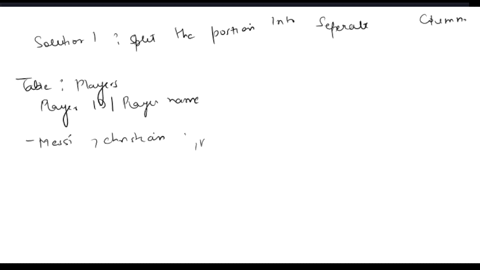 Solution 1 : split the portion into seperate Column
Table : Players
Player ID | Player name
- Messi , christian ,